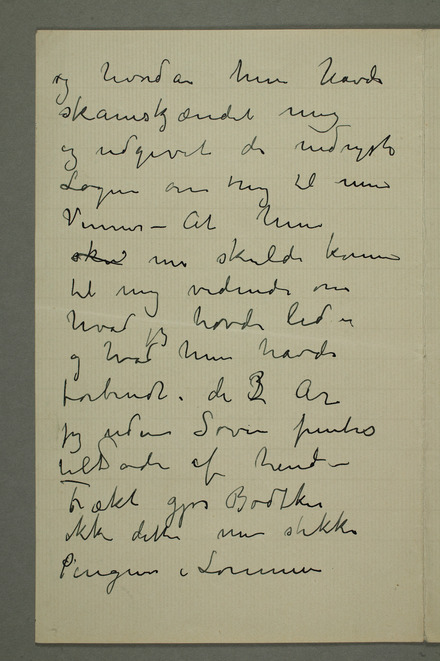 og hvordan hun havde
skamskjændet mig
og udgivet de nedrigste
Løgne om mig til mine
Venner – At hun
skul nu skulde komme
til mig vidende om
hvad jeg havde lidt
og hvad hun havde
forbrudt i de 3 År
jeg uden Søvn
af hende –
Frækt gjør Bødtker
ikke dette men stikke
Pengene i Lommen